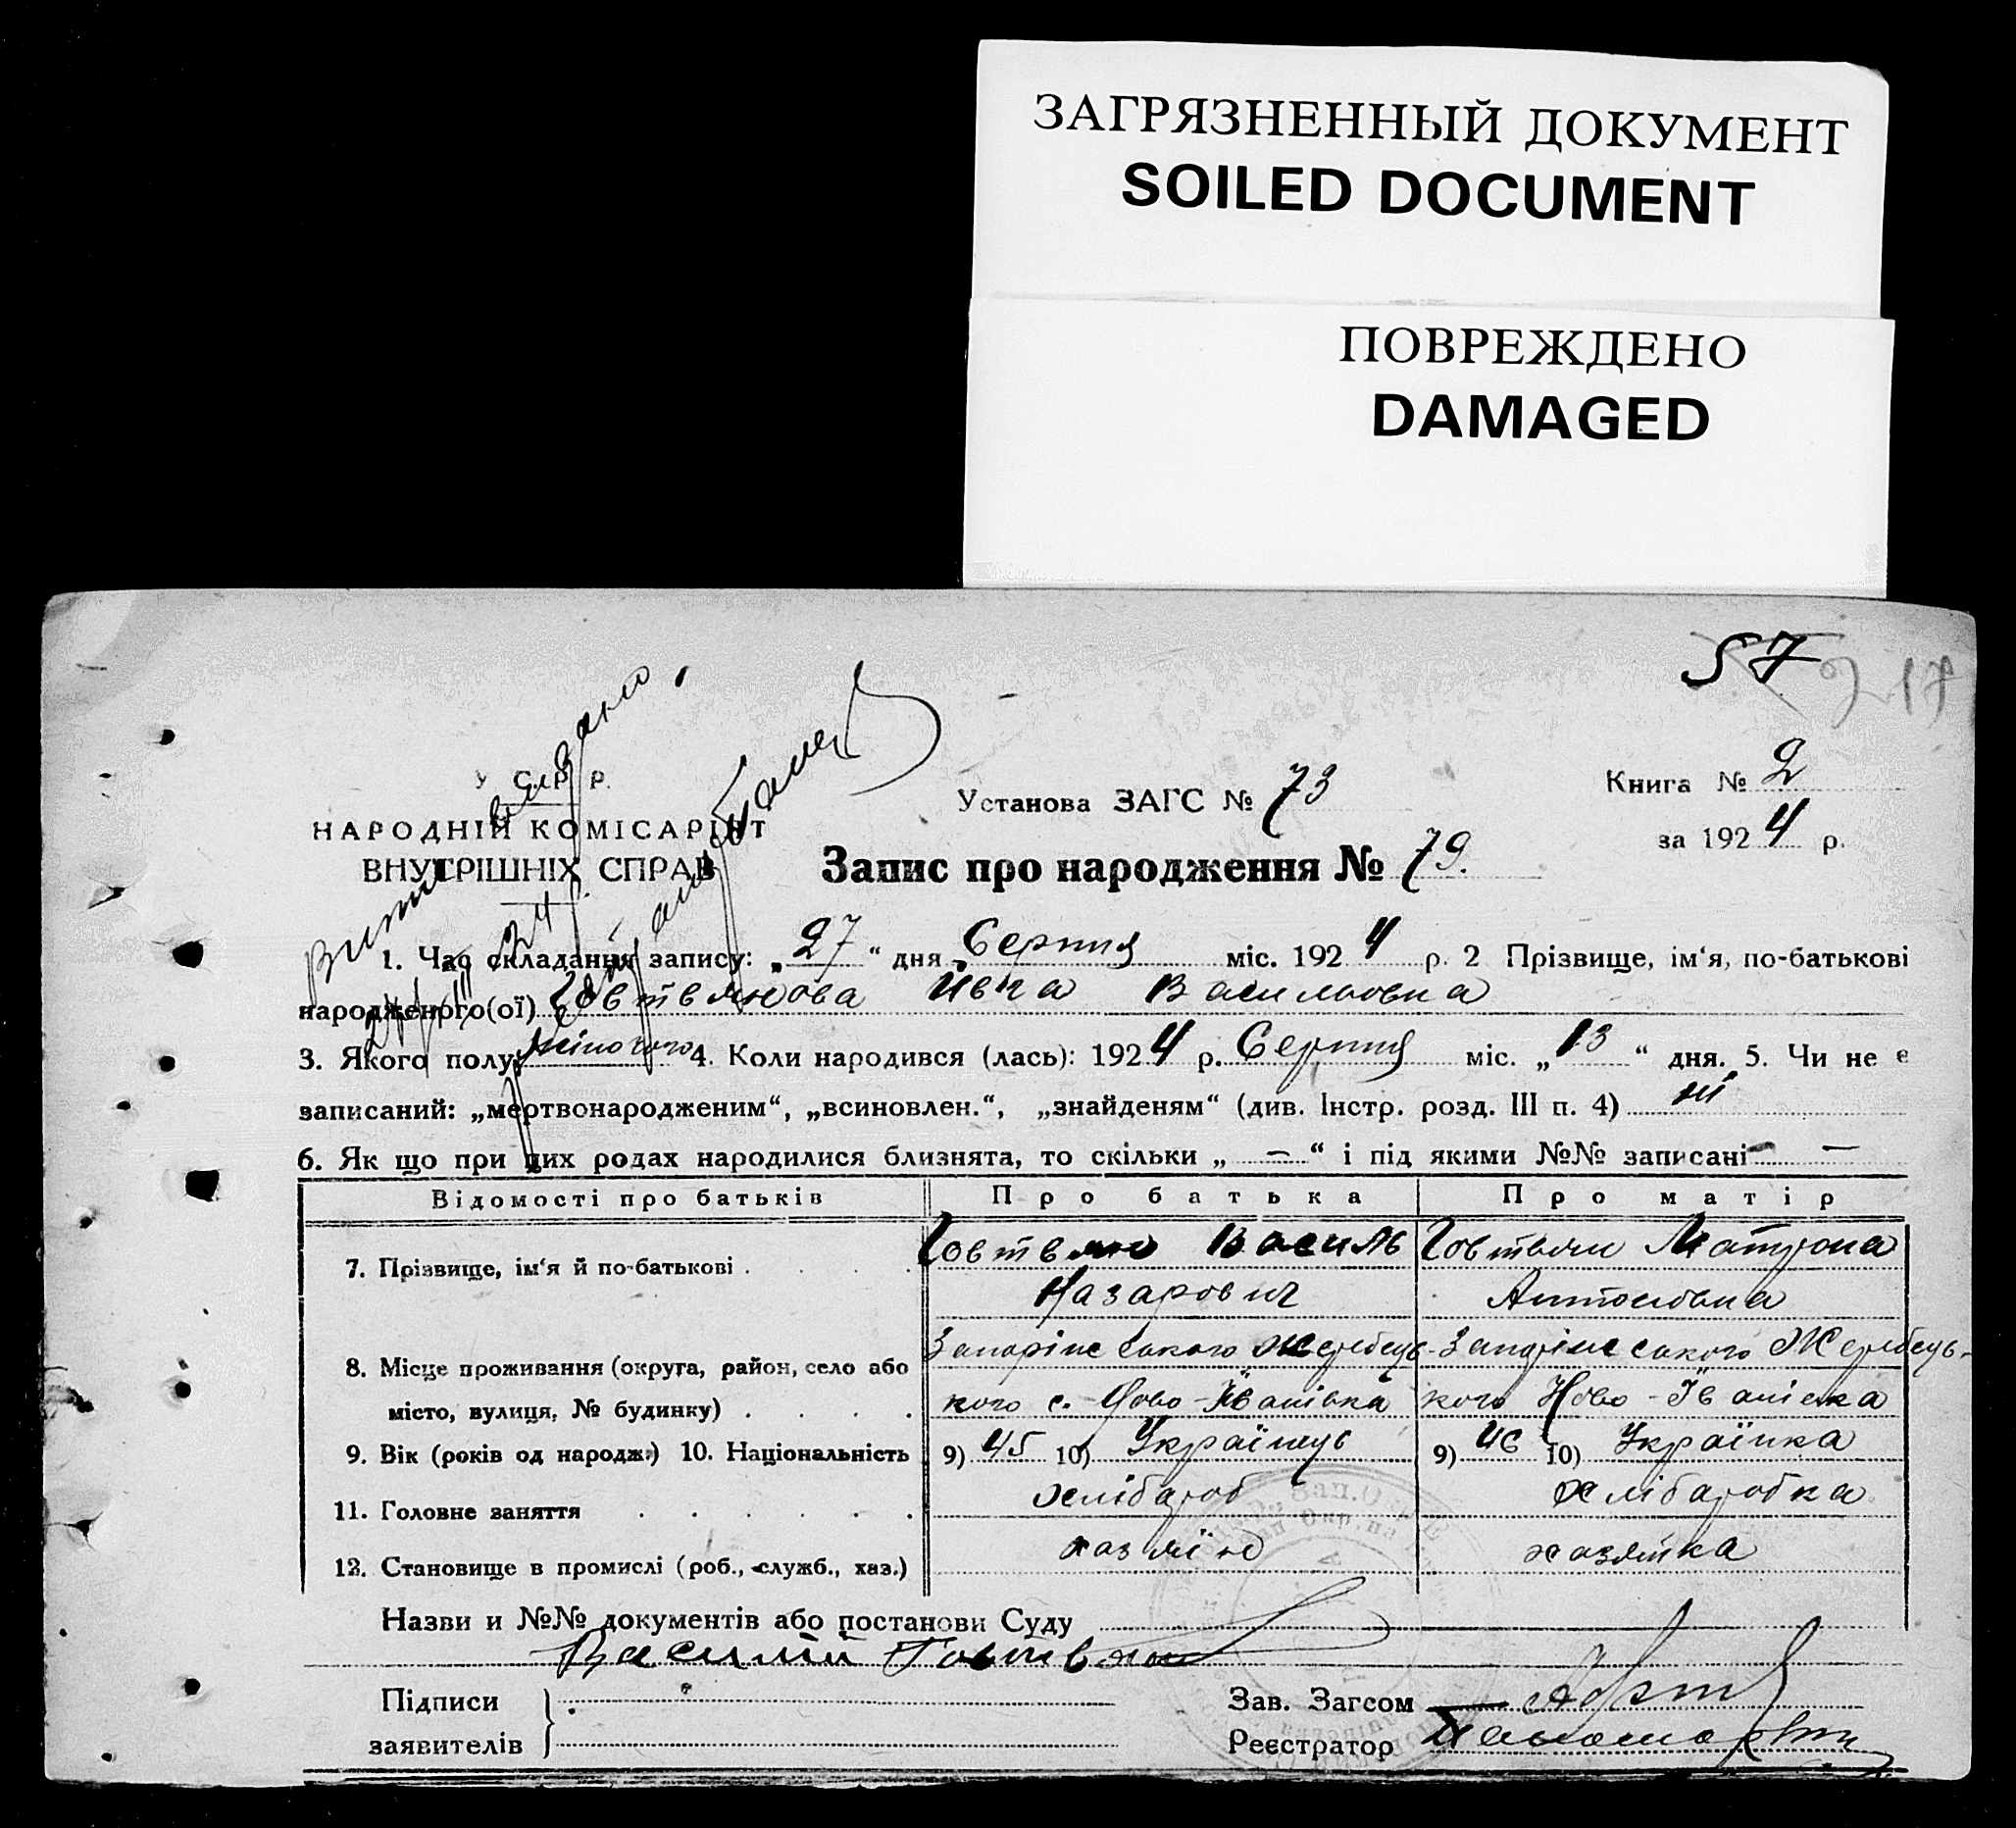 ЗАГРЯЗНЕННЫЙ ДОКУМЕНТ
SOILED DOCUMENT
ПОВРЕЖДЕНО
DAMAGED
57
17
У С.Р.Р.
НАРОДНІЙ КОМІСАРІЯТ
ВНУТРІШНІХ СПРАВ
Установа ЗАГС № 73
Книга № 2
за 1924 р.
Запис про народження № 79.
1. Час складання запису: „27“ дня Серпня міс. 1924 р. 2 Прізвище, ім‘я, по-батькові
народженого(ої) Василювна
3. Якого полу жіночого 4. Коли народився (лась): 1924 р. Серпня міс. „13“ дня. 5. Чи не є
записаний: „мертвонародженим“, „всиновлен.“, „знайденям“ (див. Інстр. розд. III п. 4) ні
6. Як що при цих родах народилися близнята, то скільки „ — “ і під якими №№ записані —
Відомості про батьків Про батька Про матір
7. Прізвище, ім‘я й по-батькові Василь Назарович Матрона Антоновна
8. Місце проживання (округа, район, село або
місто, вулиця, № будинку) Запоріжського Жеребецького с. Ново-Іванівка Запоріжського Жеребецького Ново-Іванівка
9. Вік (років од народж.) 10. Національність 9) 45 10) Українець 9) 46 10) Українка
11. Головне заняття хлібароб хлібаробка
12. Становище в промислі (роб., служб., хаз.) хазяїн хазяйка
Назви и №№ документів або постанови Суду
Василий
Підписи
заявителів
Зав. Загсом
Реєстратор